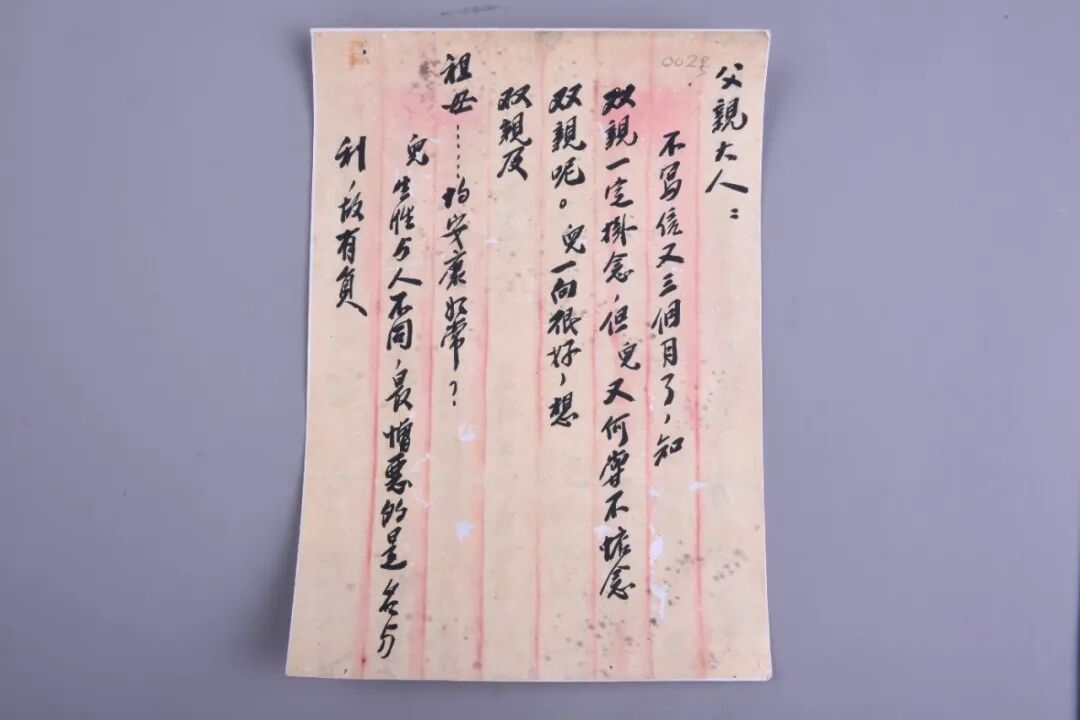 父親大人：
不寫信又三個月了，知
双親一定掛念，但兒又何嘗不惦念
双親呢。兒一向很好，想
双親及
祖母……均安康如常？
兒生性与人不同，最憎惡的是名与
利，故有負